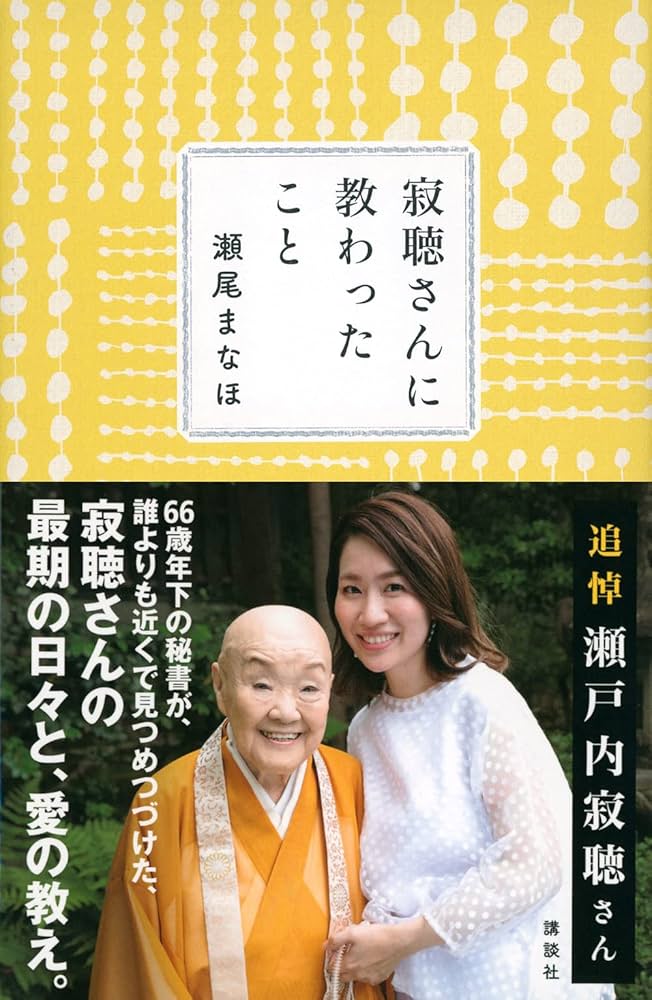 寂聴さんに
教わった
こと
瀬尾まなほ
追悼 瀬戸内寂聴さん
66歳年下の秘書が、
誰よりも近くで見つめつづけた、
寂聴さんの
最期の日々と、愛の教え。
講談社